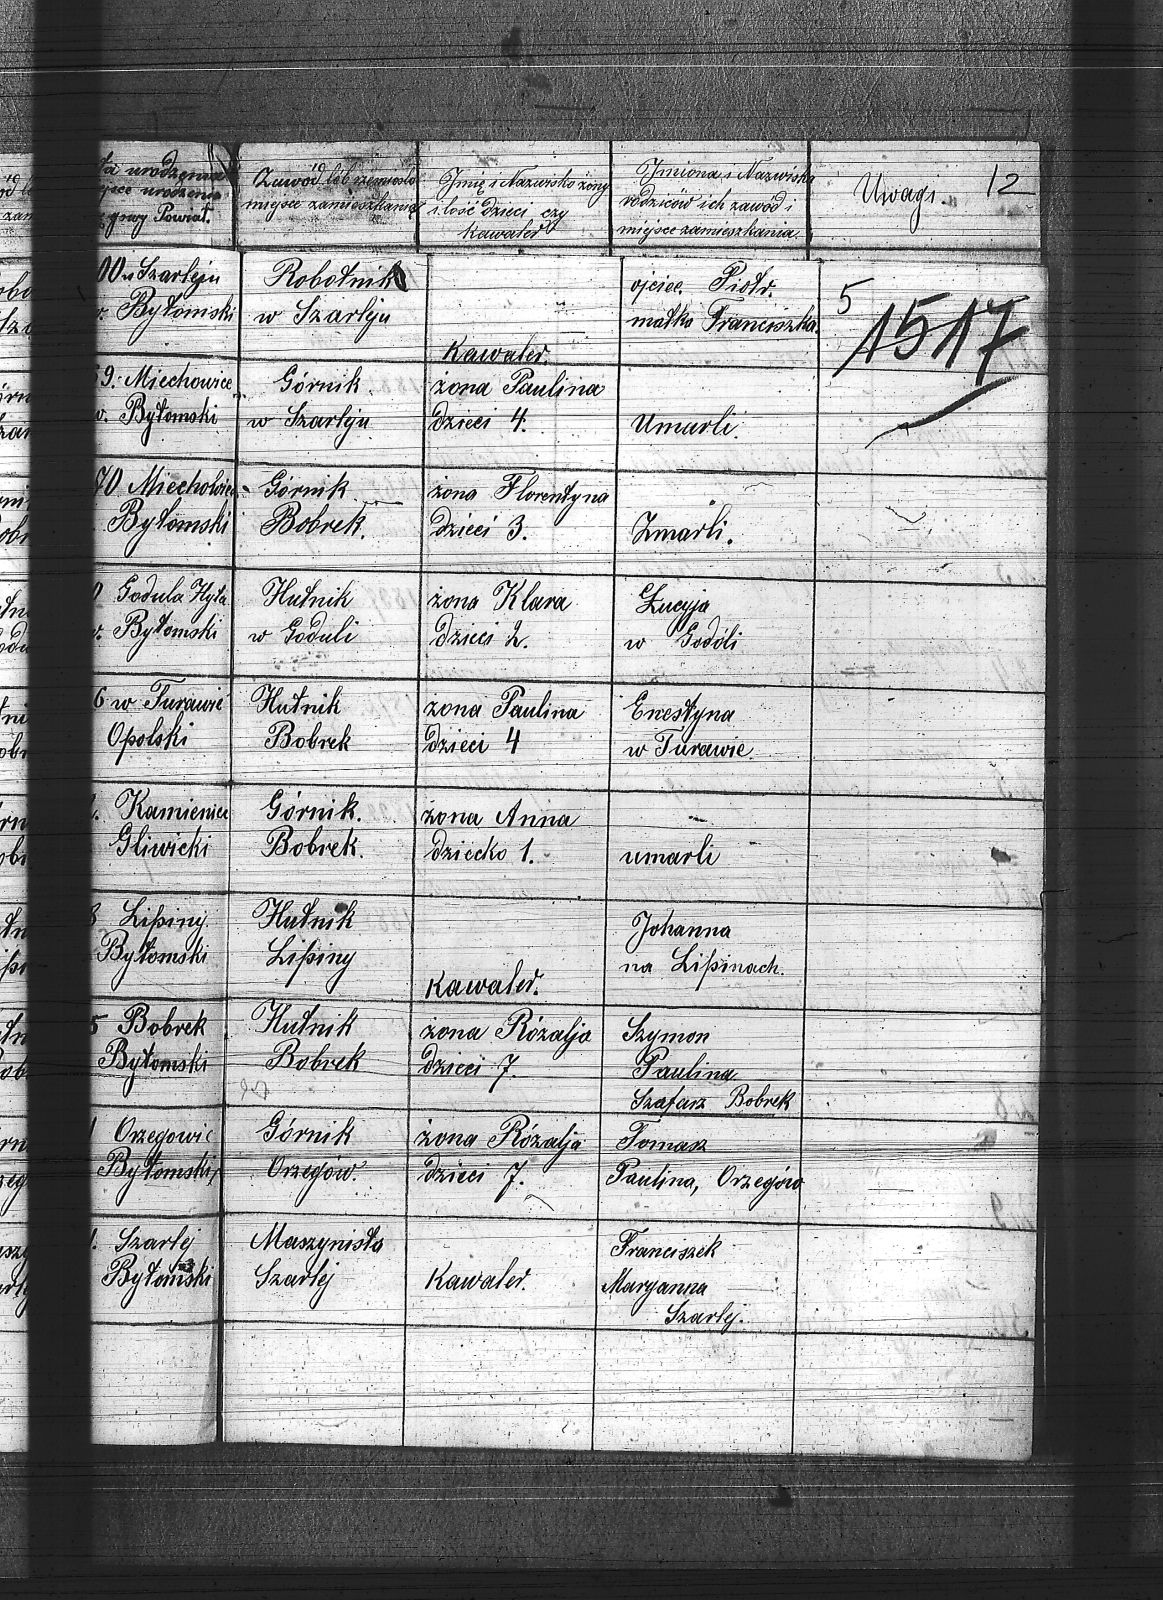 urodzenia Zawód lub rzemiosło Imię i Nazwisko żony Imiona i Nazwiska Uwagi. 12
miejsce urodzenia miejsce zamieszkania i ilość dzieci czy rodziców ich zawód i
Powiat. kawaler miejsce zamieszkania.
00 w Szarleju Robotnik ojciec Piotr. 5
Bytomski w Szarleju matka Franciszka. 1517
Kawaler.
9. Miechowice Górnik żona Paulina
Bytomski w Szarleju dzieci 4. Umarli.
70 Miechowice Górnik żona Florentyna
Bytomski Bobrek. dzieci 3. Zmarli.
Godula Hyta Hutnik żona Klara Łucyja
Bytomski w Goduli dzieci 2. w Godóli
6 w Turawie Hutnik żona Paulina Ernestyna
Opolski Bobrek dzieci 4 w Turawie.
Kamieniec Górnik. żona Anna
Gliwicki Bobrek. dziecko 1. umarli
8 Lipiny. Hutnik Johanna
Bytomski Lipiny na Lipinach.
Kawaler.
5 Bobrek Hutnik żona Rózalja Szymon
Bytomski Bobrek dzieci 7. Paulina
Szafarz Bobrek
Orzegowie Górnik żona Rózalja Tomasz
Bytomski Orzegów. dzieci 7. Paulina, Orzegów
Szarlej Maszynista Franciszek
Bytomski Szarlej Kawaler. Maryanna
Szarlej.